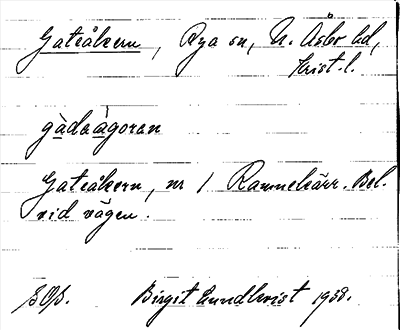 Gateåkern, Rya sn, N. Åsbo hd,
Krist. l.
gàdeågoren
Gateåkern, nr 1 Rammekärr. Bel.
vid vägen.
Birgit Lundkvist 1938.